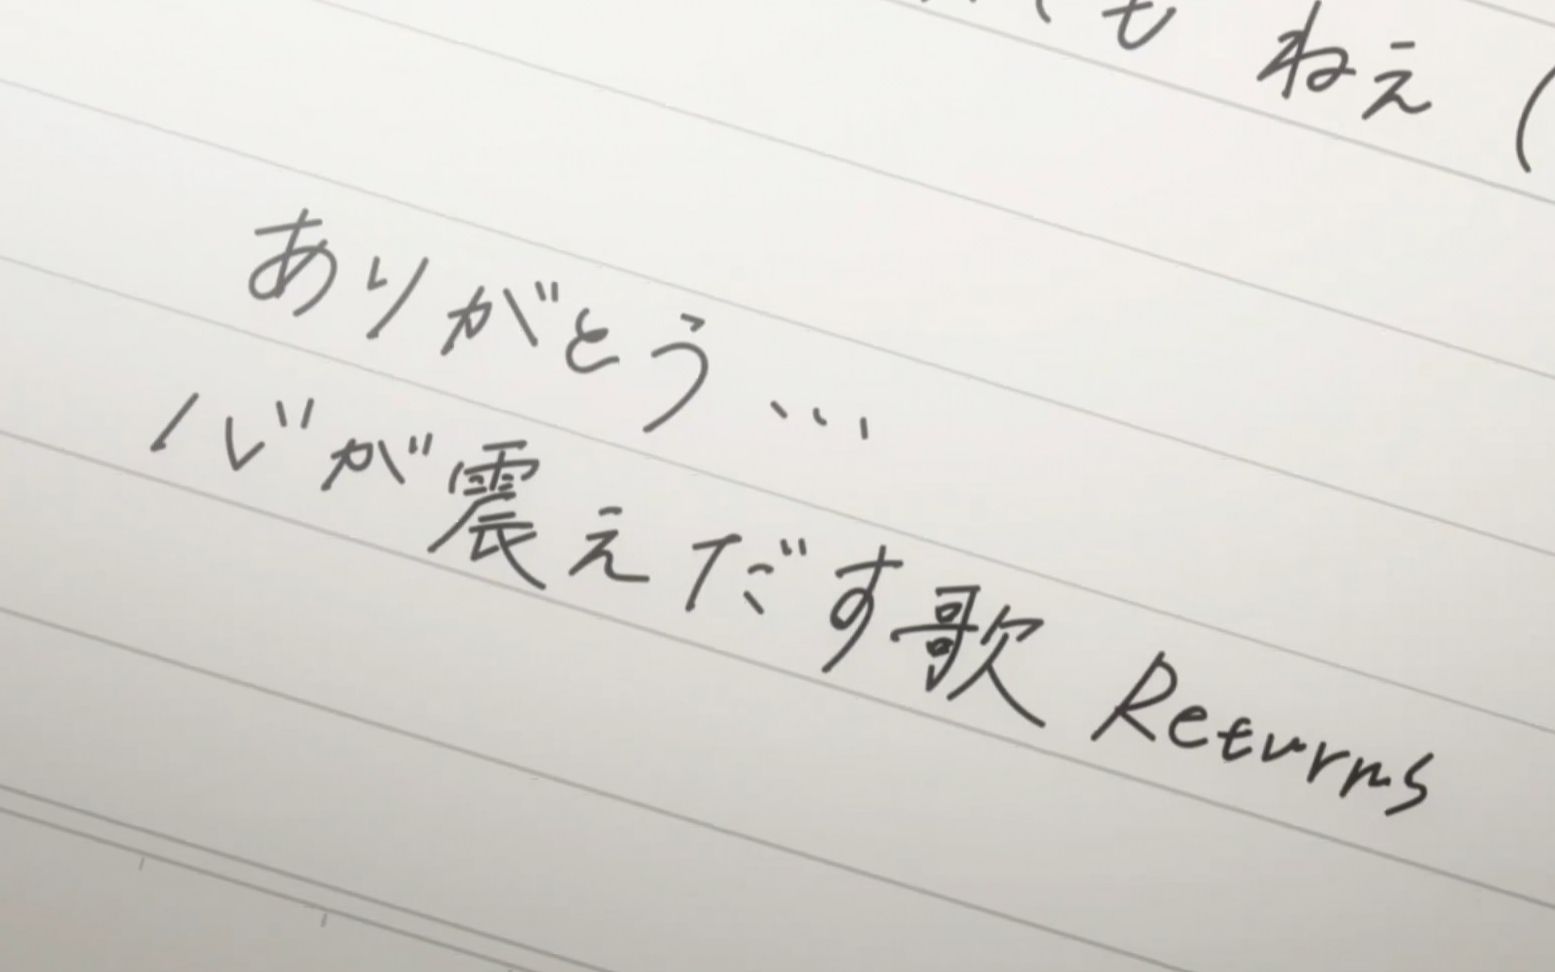 もねえ(
ありがとう…
心が震えだす歌 Returns